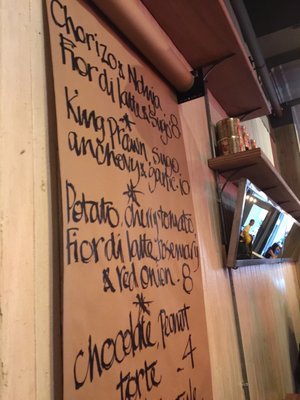 Chorizo & Nduja
Fior di latte & sugo 8
*
King Prawn, sugo,
anchovy & garlic. 10
*
Potato, cherry tomato
Fior di latte, rosemary
& red onion - 8
*
Chocolate, Peanut
torte - 4